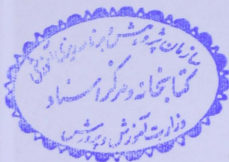 سازمان پژوهش و برنامه‌ریزی آموزشی
کتابخانه و مرکز اسناد
وزارت آموزش و پرورش